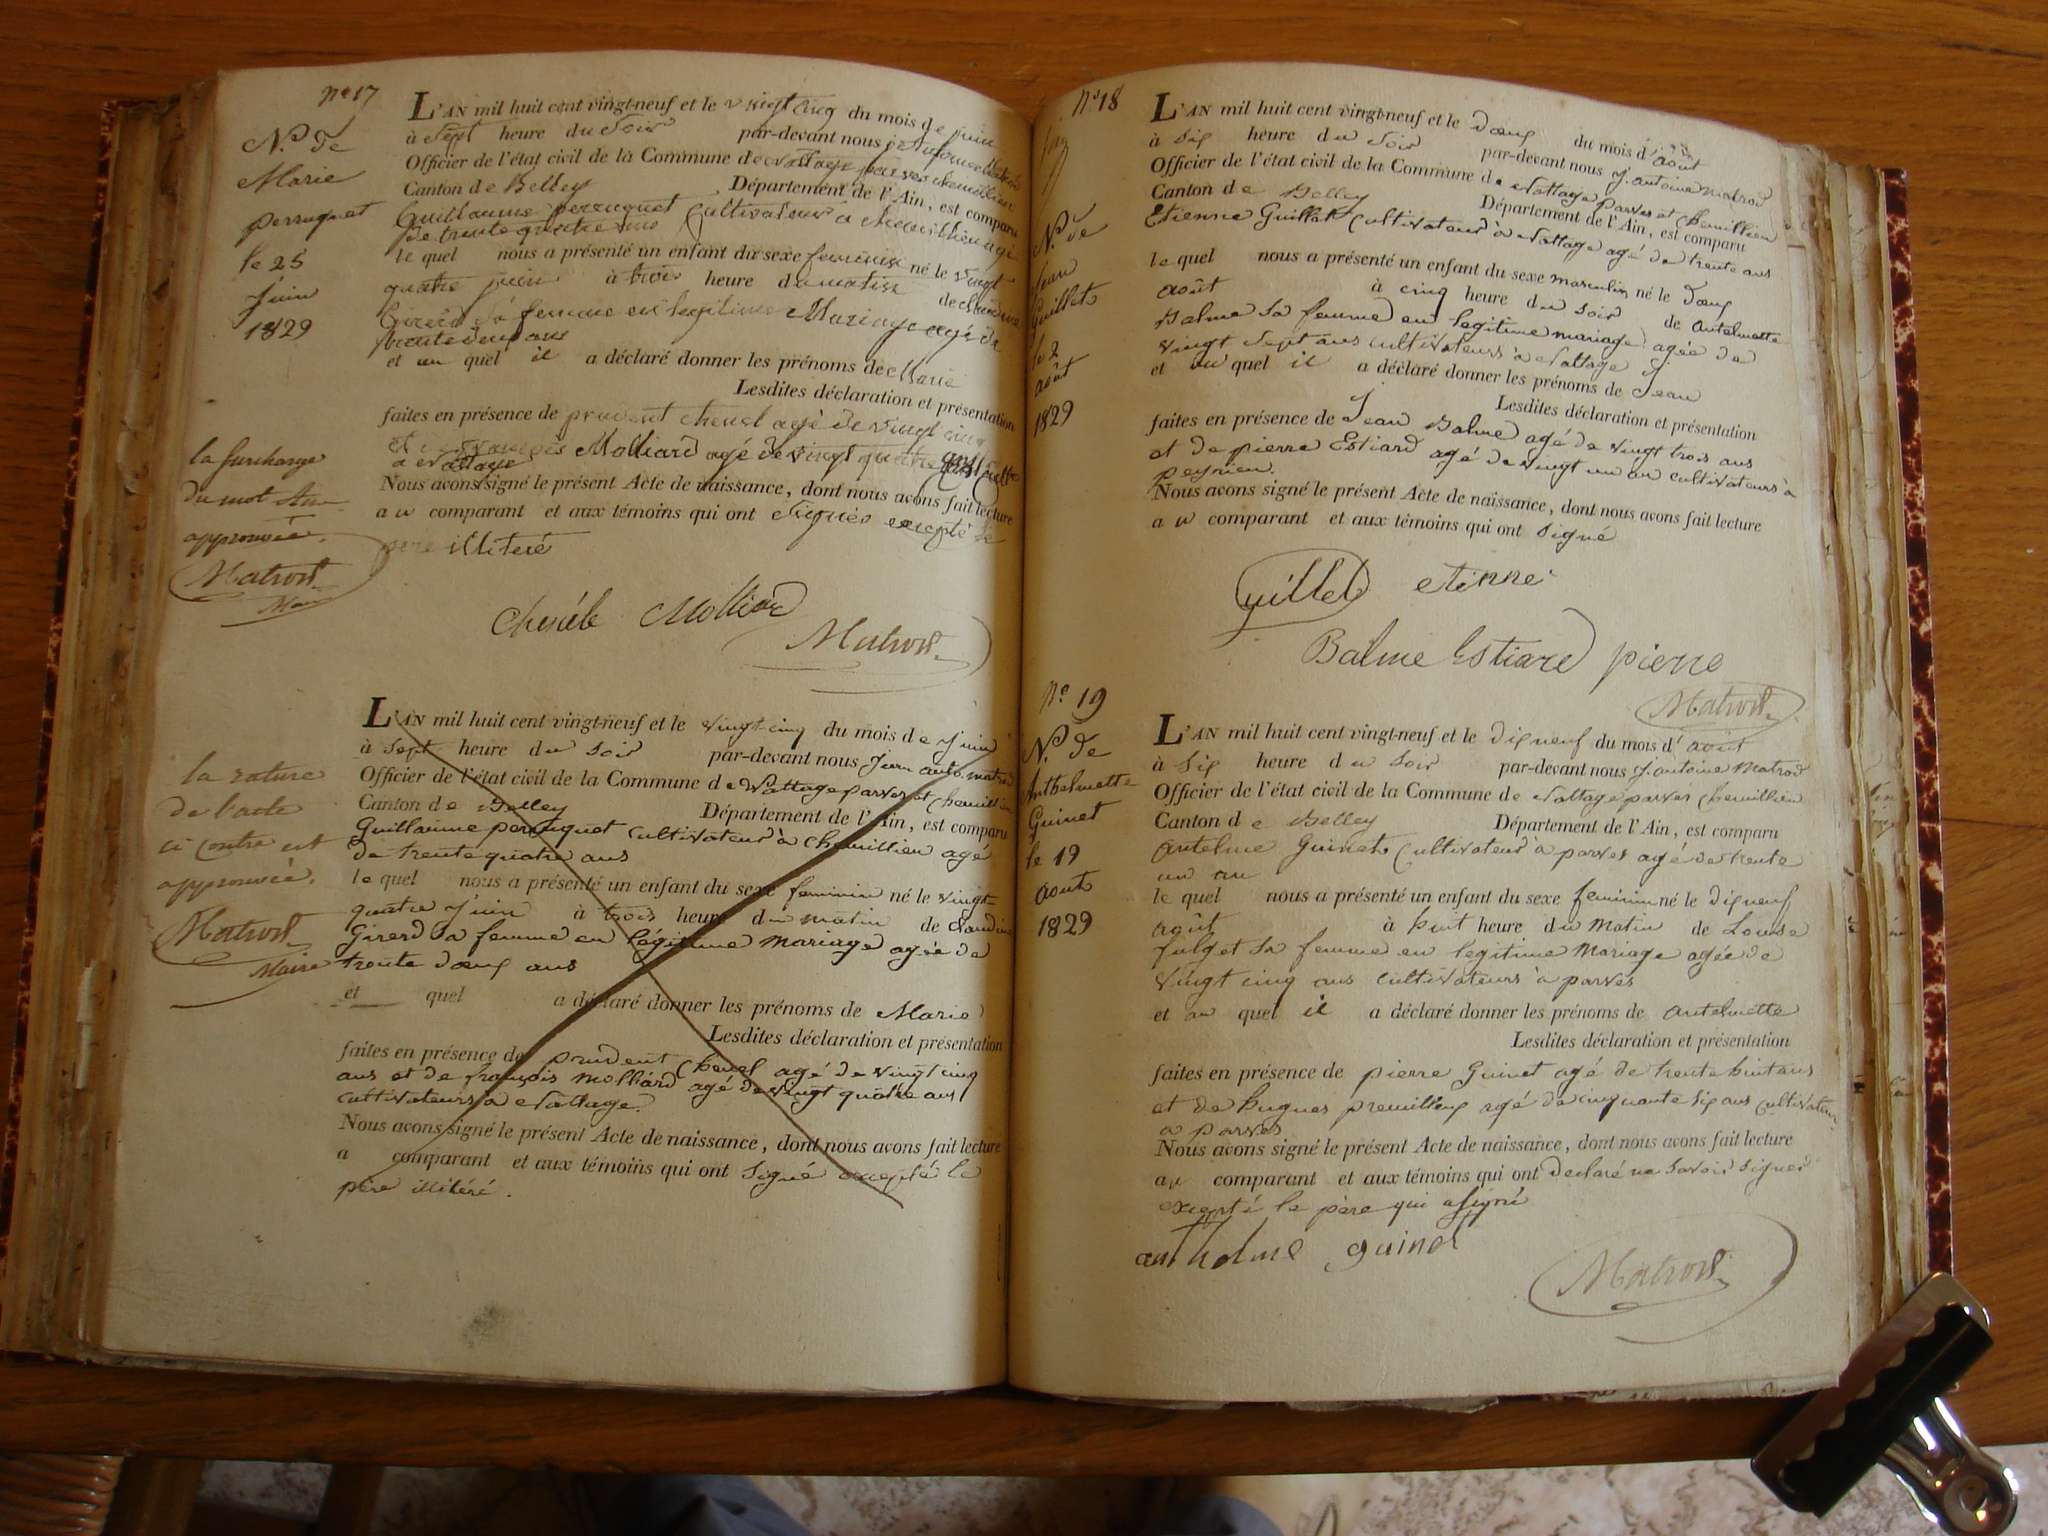 nº 17
N.ce de
Marie
perruquet
le 25
Juin
1829
L'AN mil huit cent vingt-neuf et le vingt cinq du mois de juin
à Sept heure du Soir par-devant nous
Officier de l'état civil de la Commune de
Canton de Belley Département de l'Ain, est comparu
Guillaume perruquet Cultivateur à Chemillien agé
de trente quatre ans
le quel nous a présenté un enfant du sexe feminin né le vingt
quatre juin à trois heure du matin de Claudine
Girerd sa femme en legitime Mariage agée de
trente deux ans
et au quel il a déclaré donner les prénoms de Marie
Lesdites déclaration et présentation
faites en présence de prudent Chenel agé de vingt cinq
et de françois Molliard agé de vingt quatre
à Nattage
Nous avons signé le présent Acte de naissance, dont nous avons fait lecture
au comparant et aux témoins qui ont Signés excepté le
pere illiteré
la surcharge
du mot
approuvée.
Matrod
Maire
Molliard
Matrod
la rature
de l'acte
ci contre est
approuvée.
Matrod
Maire
L'AN mil huit cent vingt-neuf et le vingt-cinq du mois de Juin
à Sept heure du Soir par-devant nous Jean anto. matrod
Officier de l'état civil de la Commune de Nattage parves et Chemillien
Canton de Belley Département de l'Ain, est comparu
Guillaume perruquet Cultivateur à Chemillien agé
de trente quatre ans
le quel nous a présenté un enfant du sexe feminin né le vingt
quatre Juin à trois heure du matin de Claudine
Girerd sa femme en légitime mariage agée de
trente deux ans
et quel a déclaré donner les prénoms de Marie
Lesdites déclaration et présentation
faites en présence de prudent Chenel agé de vingt cinq
ans et de françois Molliard agé de vingt quatre ans
cultivateurs à Nattage.
Nous avons signé le présent Acte de naissance, dont nous avons fait lecture
a comparant et aux témoins qui ont Signé excepté le
père illitéré.
nº 18
N.ce de
Jean
Guillet
le 2
août
1829
L'AN mil huit cent vingt-neuf et le deux du mois d'août
à Six heure du Soir par-devant nous J. antoine Matrod
Officier de l'état civil de la Commune de Nattage parves et Chemillien
Canton de Belley Département de l'Ain, est comparu
Etienne Guillet Cultivateur à Nattage agé de trente ans
le quel nous a présenté un enfant du sexe masculin né le deux
août à cinq heure du soir de Antelmette
Balme Sa femme en legitime mariage agée de
vingt Sept ans cultivateurs à Nattage
et au quel il a déclaré donner les prénoms de Jean
Lesdites déclaration et présentation
faites en présence de Jean Balme agé de vingt trois ans
et de pierre Estiard agé de vingt un an cultivateurs à
peyrieu.
Nous avons signé le présent Acte de naissance, dont nous avons fait lecture
au comparant et aux témoins qui ont Signé
Guillet etienne
Balme Estiard pierre
Matrod
nº 19
N.ce de
Anthelmette
Guinet
le 19
aout
1829
L'AN mil huit cent vingt-neuf et le dix neuf du mois d'août
à Six heure du Soir par-devant nous J. antoine Matrod
Officier de l'état civil de la Commune de Nattage parves Chemillien
Canton de Belley Département de l'Ain, est comparu
Antelme Guinet Cultivateur à parves agé de trente
un an
le quel nous a présenté un enfant du sexe feminin né le dix neuf
août à huit heure du Matin de Louise
Julget Sa femme en legitime Mariage agée de
vingt cinq ans cultivateurs à parves
et au quel il a déclaré donner les prénoms de antelmette
Lesdites déclaration et présentation
faites en présence de pierre Guinet agé de trente huit ans
et de hugues premillieux agé de cinquante Six ans cultivateurs
à parves
Nous avons signé le présent Acte de naissance, dont nous avons fait lecture
au comparant et aux témoins qui ont declaré ne Savoir Signer
excepté le père qui a signé
anthelme guinet
Matrod